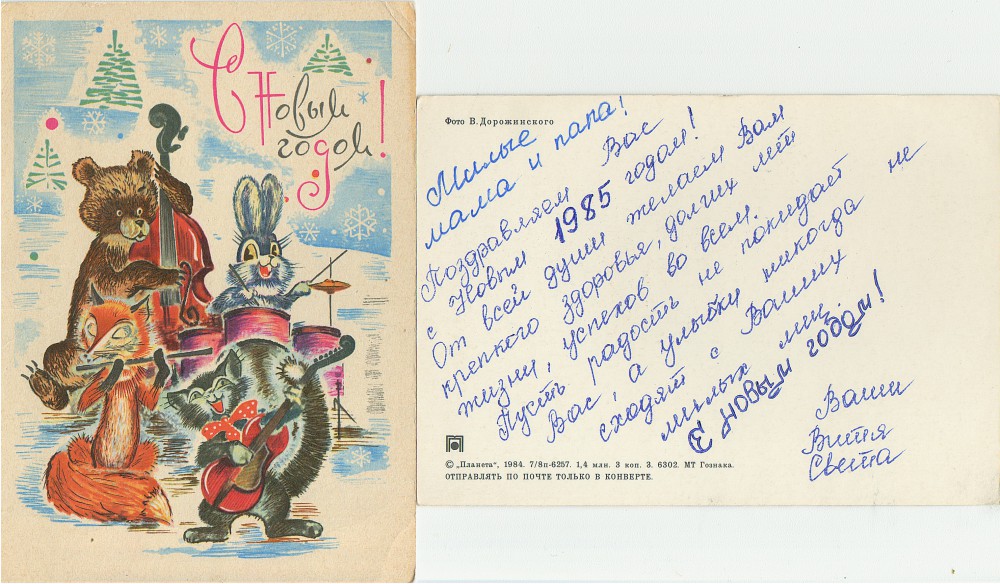 С Новым
годом!
Фото В. Дорожинского
Милые
мама и папа!
Поздравляем Вас
с Новым 1985 годом!
От всей души желаем Вам
крепкого здоровья, долгих лет
жизни, успехов во всем.
Пусть радость не покидает
Вас, а улыбки никогда не
сходят с Ваших
милых лиц.
С Новым годом!
Ваши
Витя
Света
© „Планета", 1984. 7/8п-6257. 1,4 млн. 3 коп. З. 6302. МТ Гознака.
ОТПРАВЛЯТЬ ПО ПОЧТЕ ТОЛЬКО В КОНВЕРТЕ.